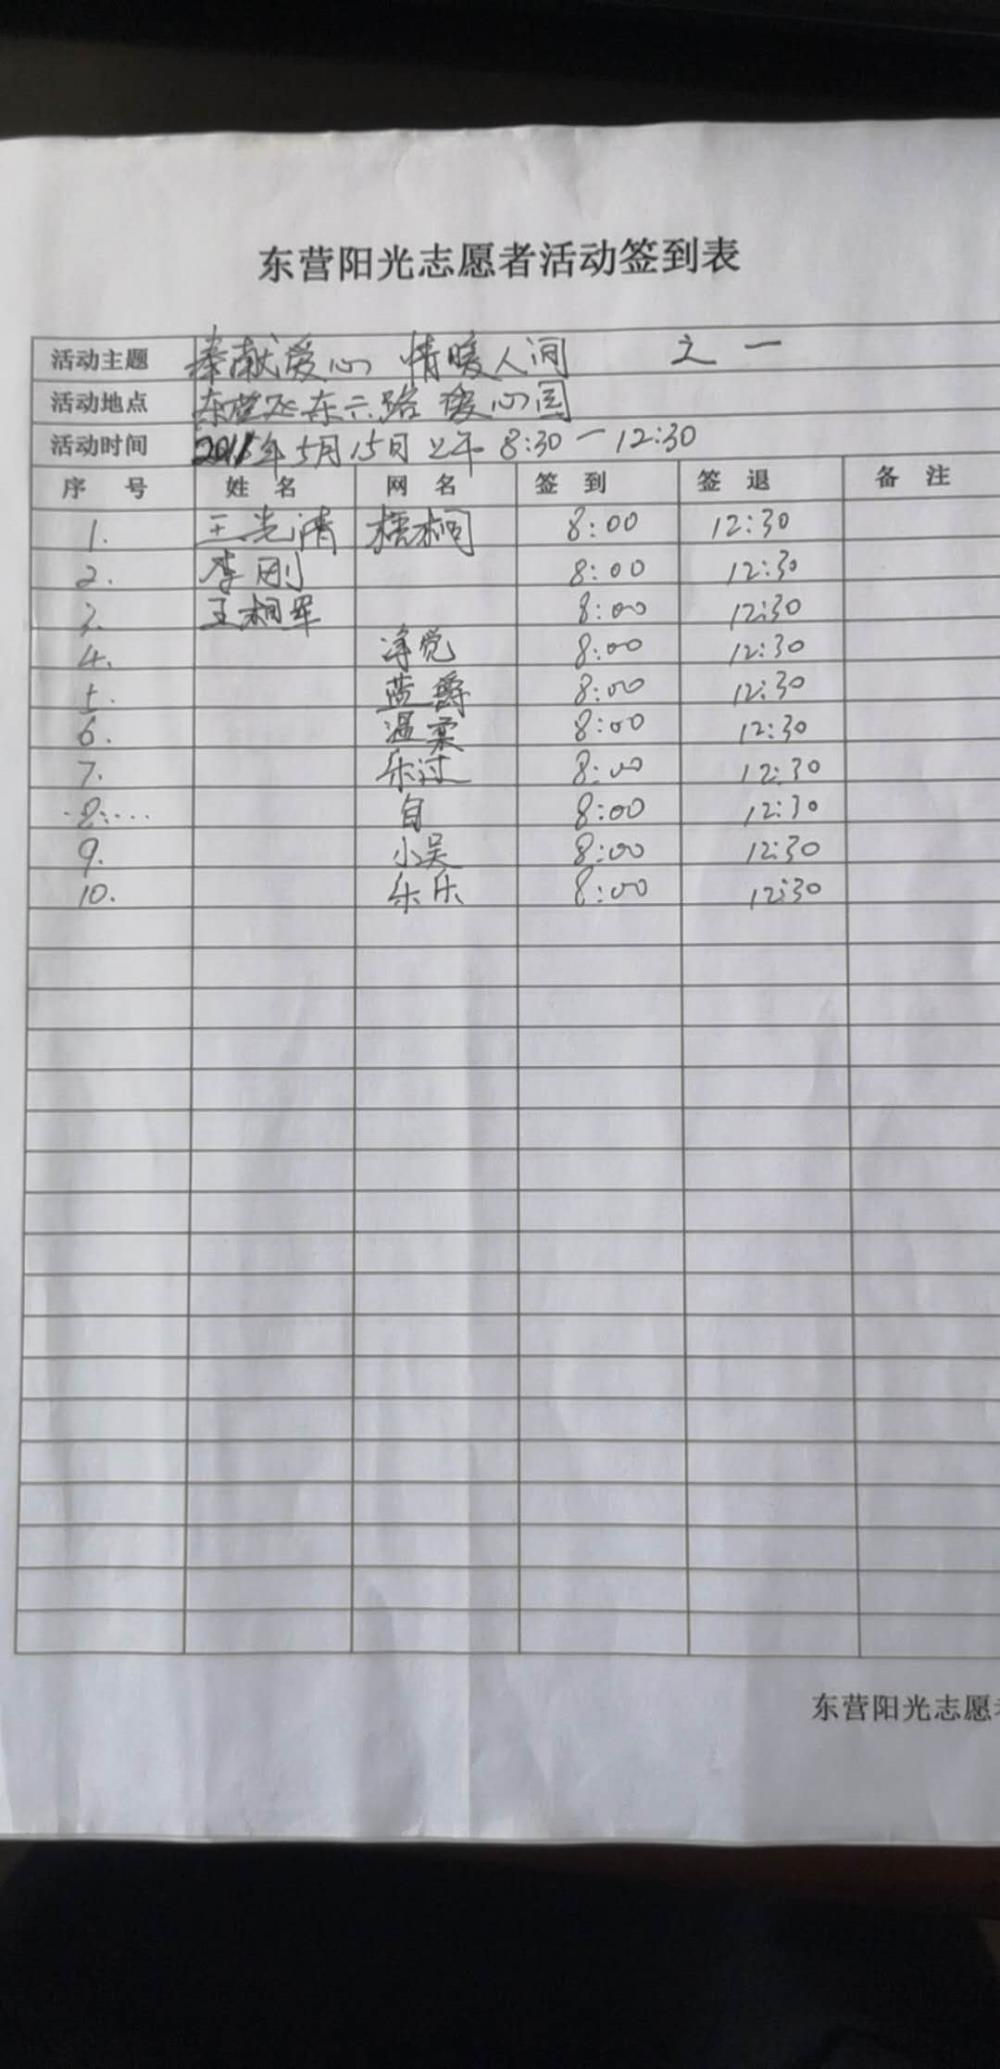 东营阳光志愿者活动签到表
活动主题 奉献爱心 情暖人间 之一
活动地点 东营区东六路 暖心园
活动时间 年5月15日上午 8:30一12:30
序 号 姓 名 网 名 签 到 签 退 备 注
1. 王光清 梧桐 8:00 12:30
2. 李刚 8:00 12:30
3. 王相军 8:00 12:30
4. 净觉 8:00 12:30
5. 蓝爵 8:00 12:30
6. 温柔 8:00 12:30
7. 乐过 8:00 12:30
8. 自 8:00 12:30
9. 小吴 8:00 12:30
10. 乐乐 8:00 12:30
东营阳光志愿